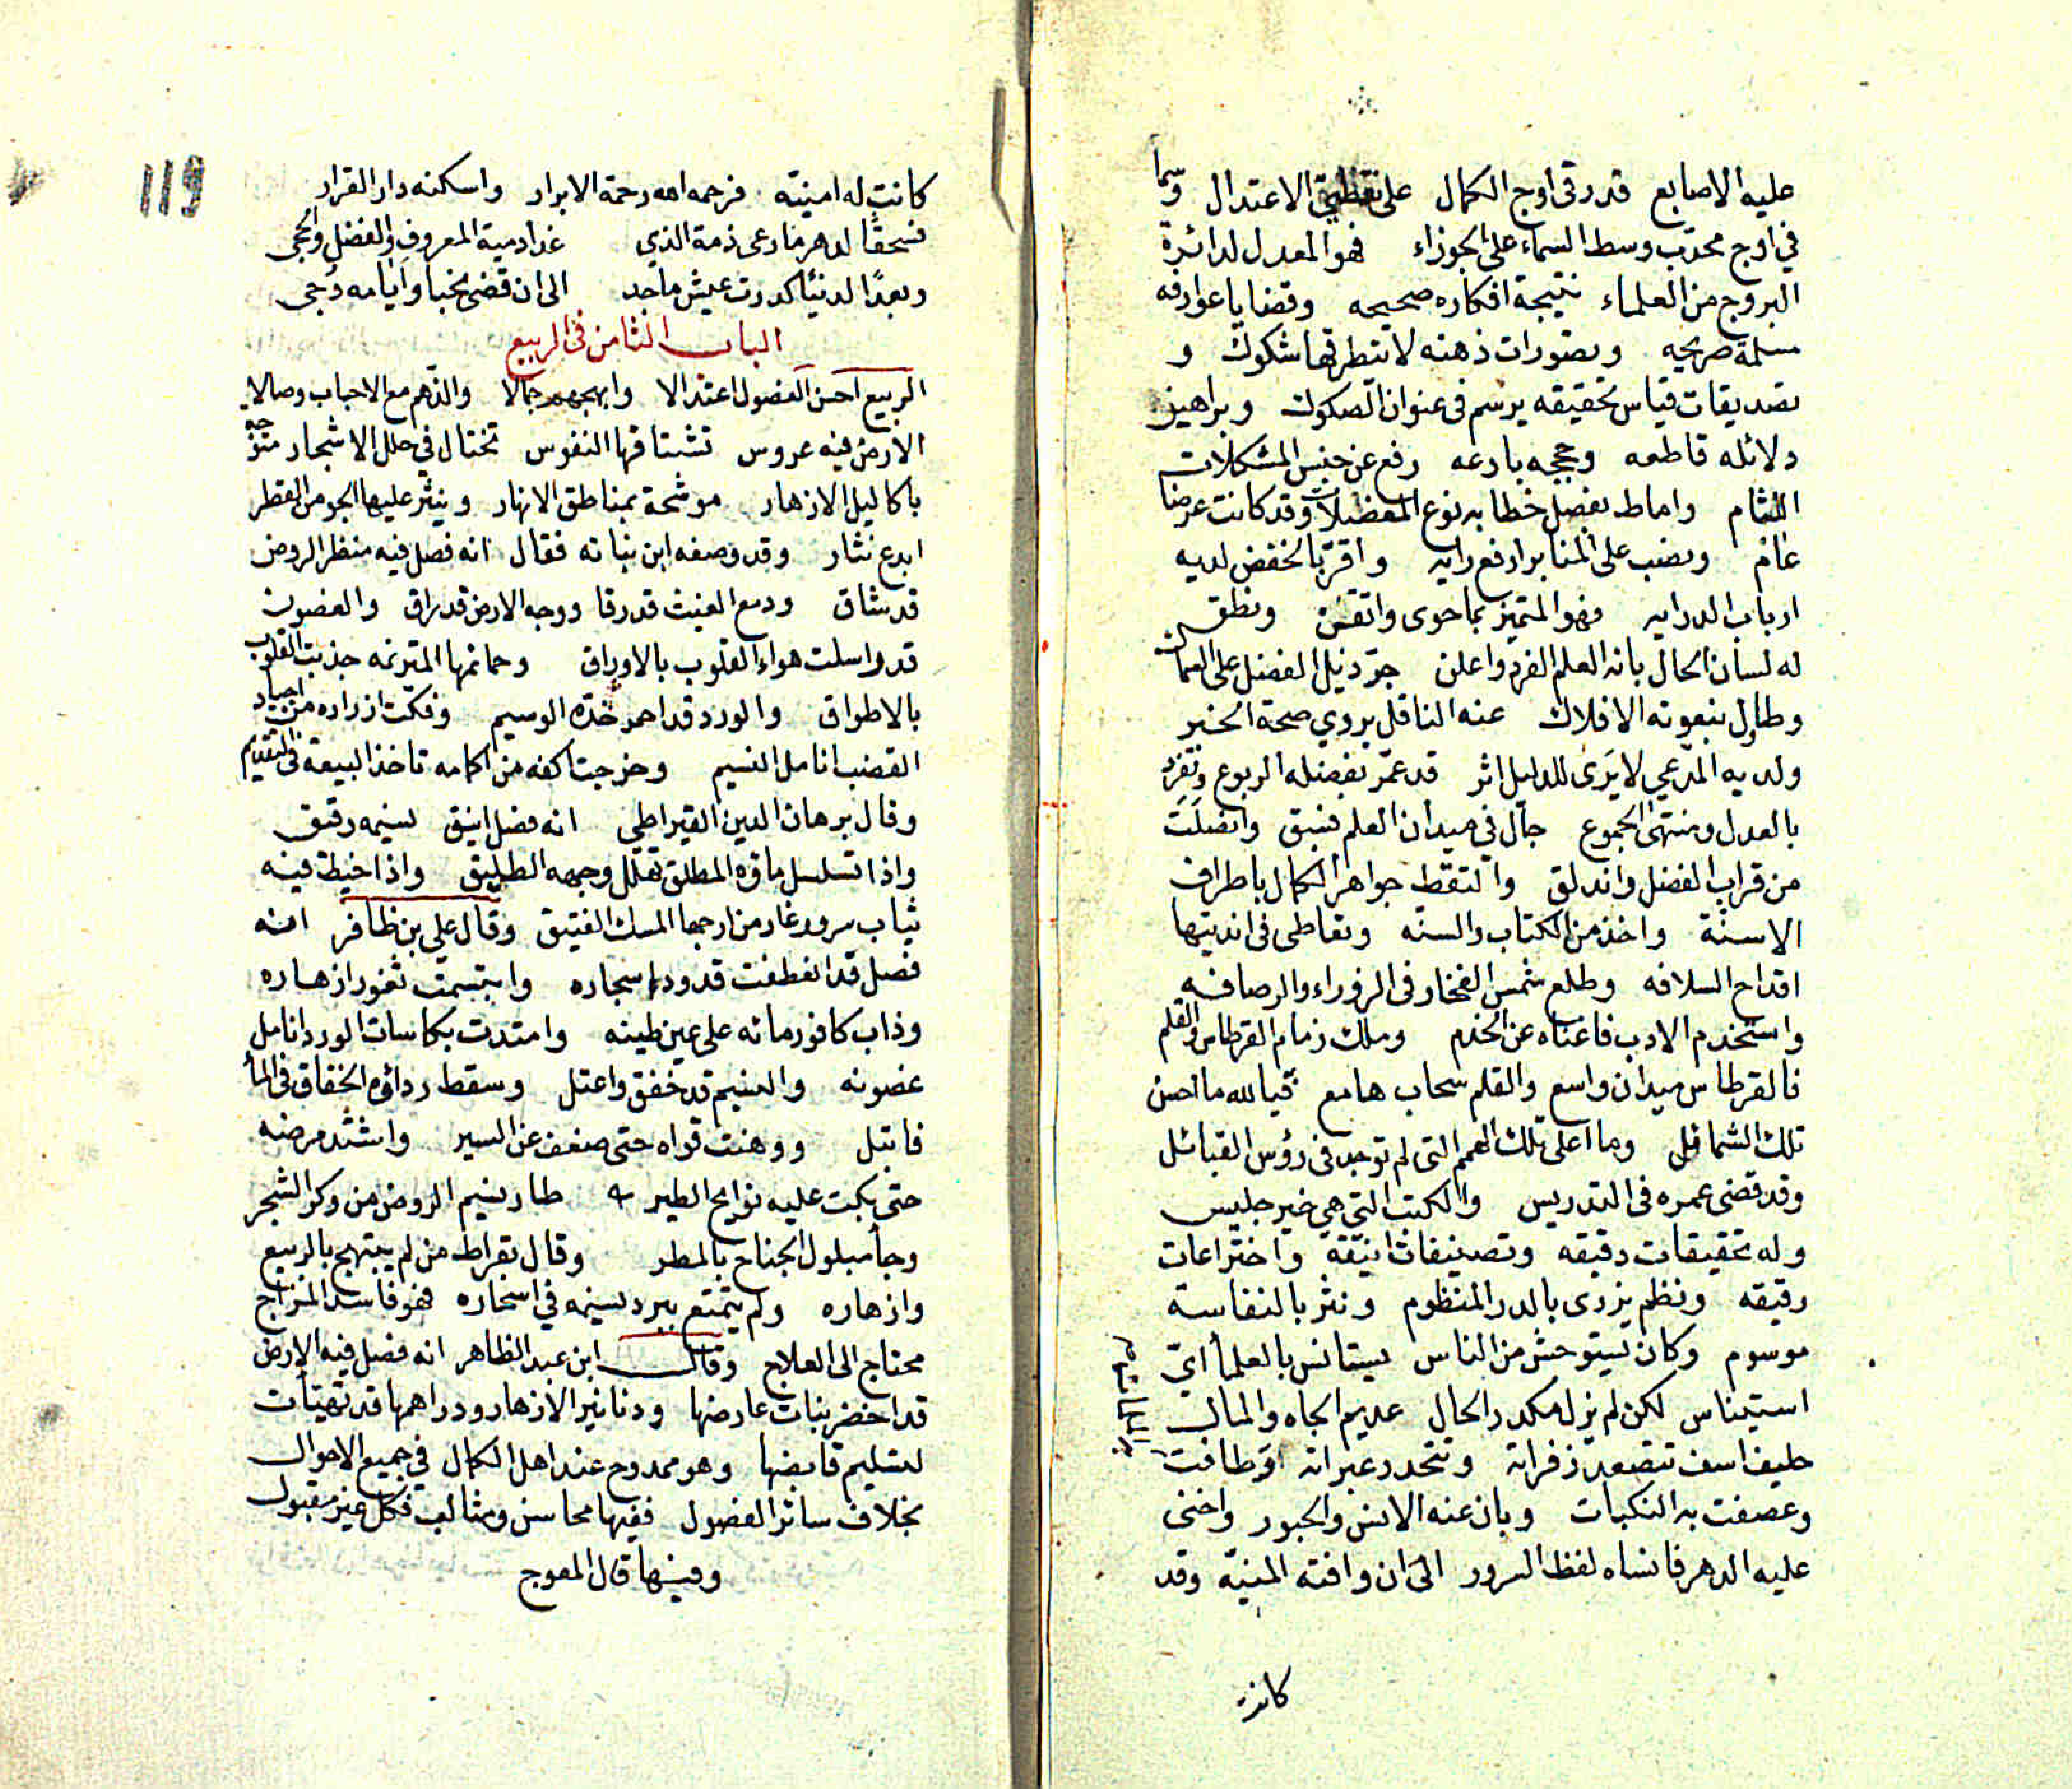 عليه الاصابع قد رقى اوج الكمال على نقطتي الاعتدال وسما
في اوج محدب وسط السماء على الجوزاء فهو المعدل لدائرة
البروج من العلماء نتيجة افكاره صحيحه وقضايا عوارفه
مسلمة صريحه وتصورات ذهنه لا تتطرقها شكوك و
تصديقات قياس تحقيقه يرسم في عنوان الصكوك وبراهين
دلائله قاطعه وحججه بارعه رفع عن جنس المشكلات
اللثام واماط بفصل خطابه نوع المعضلات وقد كانت عرضا
عام ونصب على المنابر ارفع رايه واقر بالخفض لديه
ارباب الدرايه فهو المتميز بما حوى واتقن ونطق
له لسان الحال بانه العلم الفرد واعلن جر ذيل الفضل على السماك
وطاول بنعوته الافلاك عنه الناقل يروي صحة الخبر
ولديه المدعي لا يرى للدليل اثر قد عمر بفضله الربوع وتفرد
بالعدل ومنتهى الجموع جال في ميدان العلم فسبق وانصلت
من قراب الفضل واندلق والتقط جواهر الكمال باطراف
الاسنة واخذ من الكتاب والسنه وتعاطى في انديتها
اقداح السلافه وطلع شمس الفخار في الزوراء والرصافه
واستخدم الادب فاغناه عن الخدم وملك زمام القرطاس والقلم
فالقرطاس ميدان واسع والقلم سحاب هامع فيالله ما احسن
تلك الشمائل وما اعلى تلك الهمم التي لم توجد في رؤس القبائل
وقد قضى عمره في التدريس والكتب التي هي خير جليس
وله تحقيقات دقيقه وتصنيفات انيقة واختراعات
رقيقه ونظم يزري بالدر المنظوم ونثر بالنفاسة
موسوم وكان يستوحش من الناس يستانس بالعلما اي
استيناس لكن لم يزل مكدر الحال عديم الجاه والمال
حليف اسف تتصعد زفراته وتتحدر عبراته وطافت
وعصفت به النكبات وبان عنه الانس والحبور واخنى
عليه الدهر فانساه لفظ السرور الى ان وافته المنية وقد
كانت
119
كانت له امنيته فرحمه الله رحمة الابرار واسكنه دار القرار
فسحقا لدهر ما رعى ذمة الذي غدا دمية المعروف والفضل والحجى
وبعدا لدنيا كدرت عيش ماجد الى ان قضى نحبا وايامه دجى
الباب الثامن في الربيع
الربيع احسن الفصول اعتدالا وابهجهم جمالا والذهم مع الاحباب وصالا
الارض فيه عروس تشتاقها النفوس تختال في حلل الاشجار متوجه
باكاليل الازهار موشحة بمناطق الانهار وينثر عليها الجو من القطر
ابدع نثار وقد وصفه ابن نباته فقال انه فصل فيه منظر الروض
قد شاق ودمع الغيث قد رقا ووجه الارض قد راق والغصون
قد راسلت هواء القلوب بالاوراق وحمائمها المترنمه جذبت القلوب
بالاطواق والورد قد احمر خده الوسيم وفكت ازراره من اجياد
القضب انامل النسيم وخرجت اكفه من اكمامه تاخذ البيعة في التقديم
وقال برهان الدين القيراطي انه فصل انيق نسيمه رقيق
واذا تسلسل ماؤه المطلق تهلل وجهه الطليق واذا خيط فيه
ثياب سرور غار من ارجها المسك الفتيق وقال علي بن ظافر انه
فصل قد انعطفت قدود اشجاره وابتسمت ثغور ازهاره
وذاب كافور مائه على عين طينه وامتدت بكاسات الورد انامل
غصونه والنسيم قد خفق واعتل وسقط رداؤه الخفاق في الما
فابتل ووهنت قواه حتى ضعف عن السير واشتد مرضه
حتى بكت عليه نوايح الطير طار نسيم الروض من وكر الشجر
وجا مبلول الجناح بالمطر وقال بقراط من لم يبتهج بالربيع
وازهاره ولم يتمتع ببرد نسيمه في اسحاره فهو فاسد المزاج
محتاج الى العلاج وقال ابن عبد الظاهر انه فصل فيه الارض
قد اخضر نبات عارضها ودنانير الازهار ودراهمها قد تهيات
لتسليم قابضها وهو ممدوح عند اهل الكمال في جميع الاحوال
بخلاف سائر الفصول ففيها محاسن ومثالب فكل غير مقبول
وفيها قال المعوج